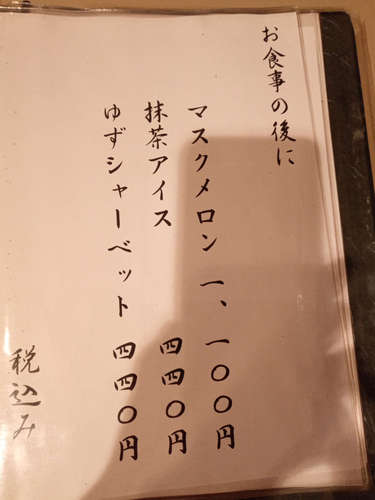 お食事の後に
マスクメロン 一、一〇〇円
抹茶アイス 四四〇円
ゆずシャーベット 四四〇円
税込み